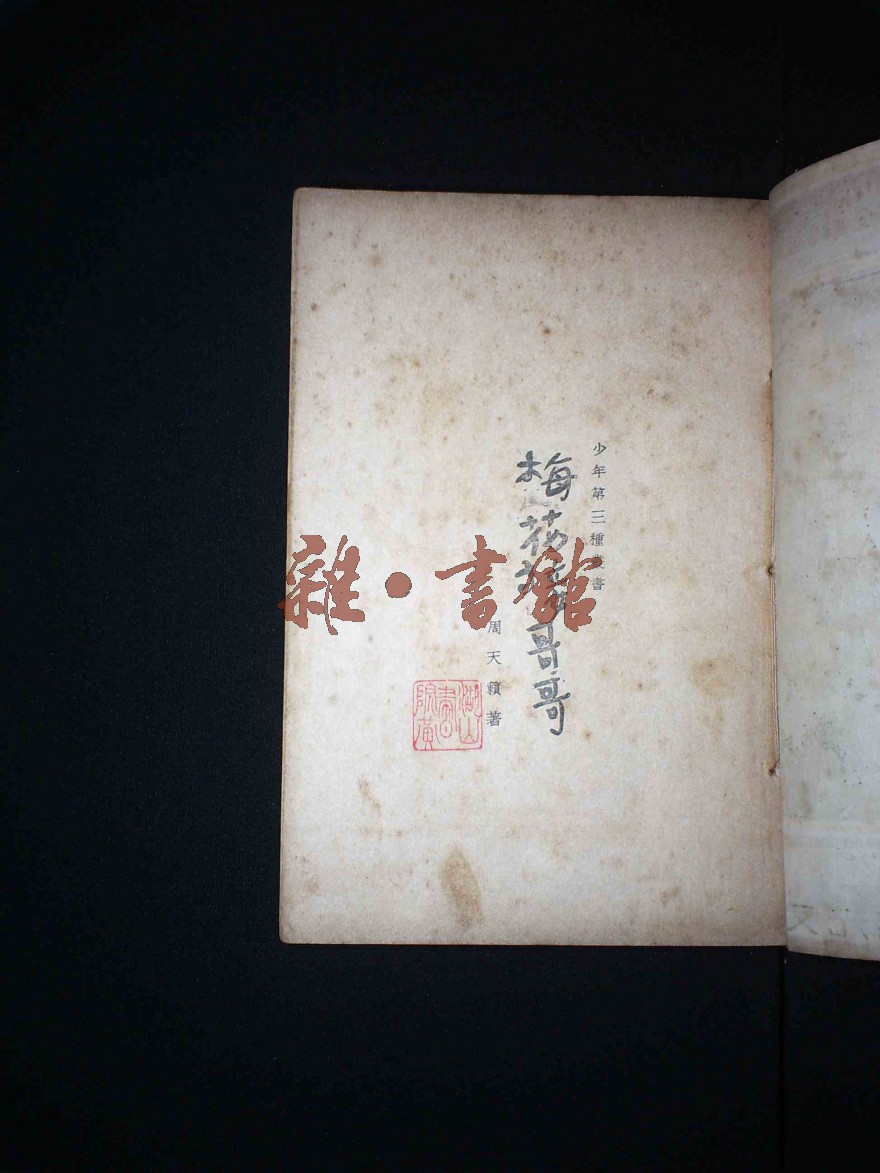 少年第三種叢書
梅花接哥哥
周天籟著
雜·書館